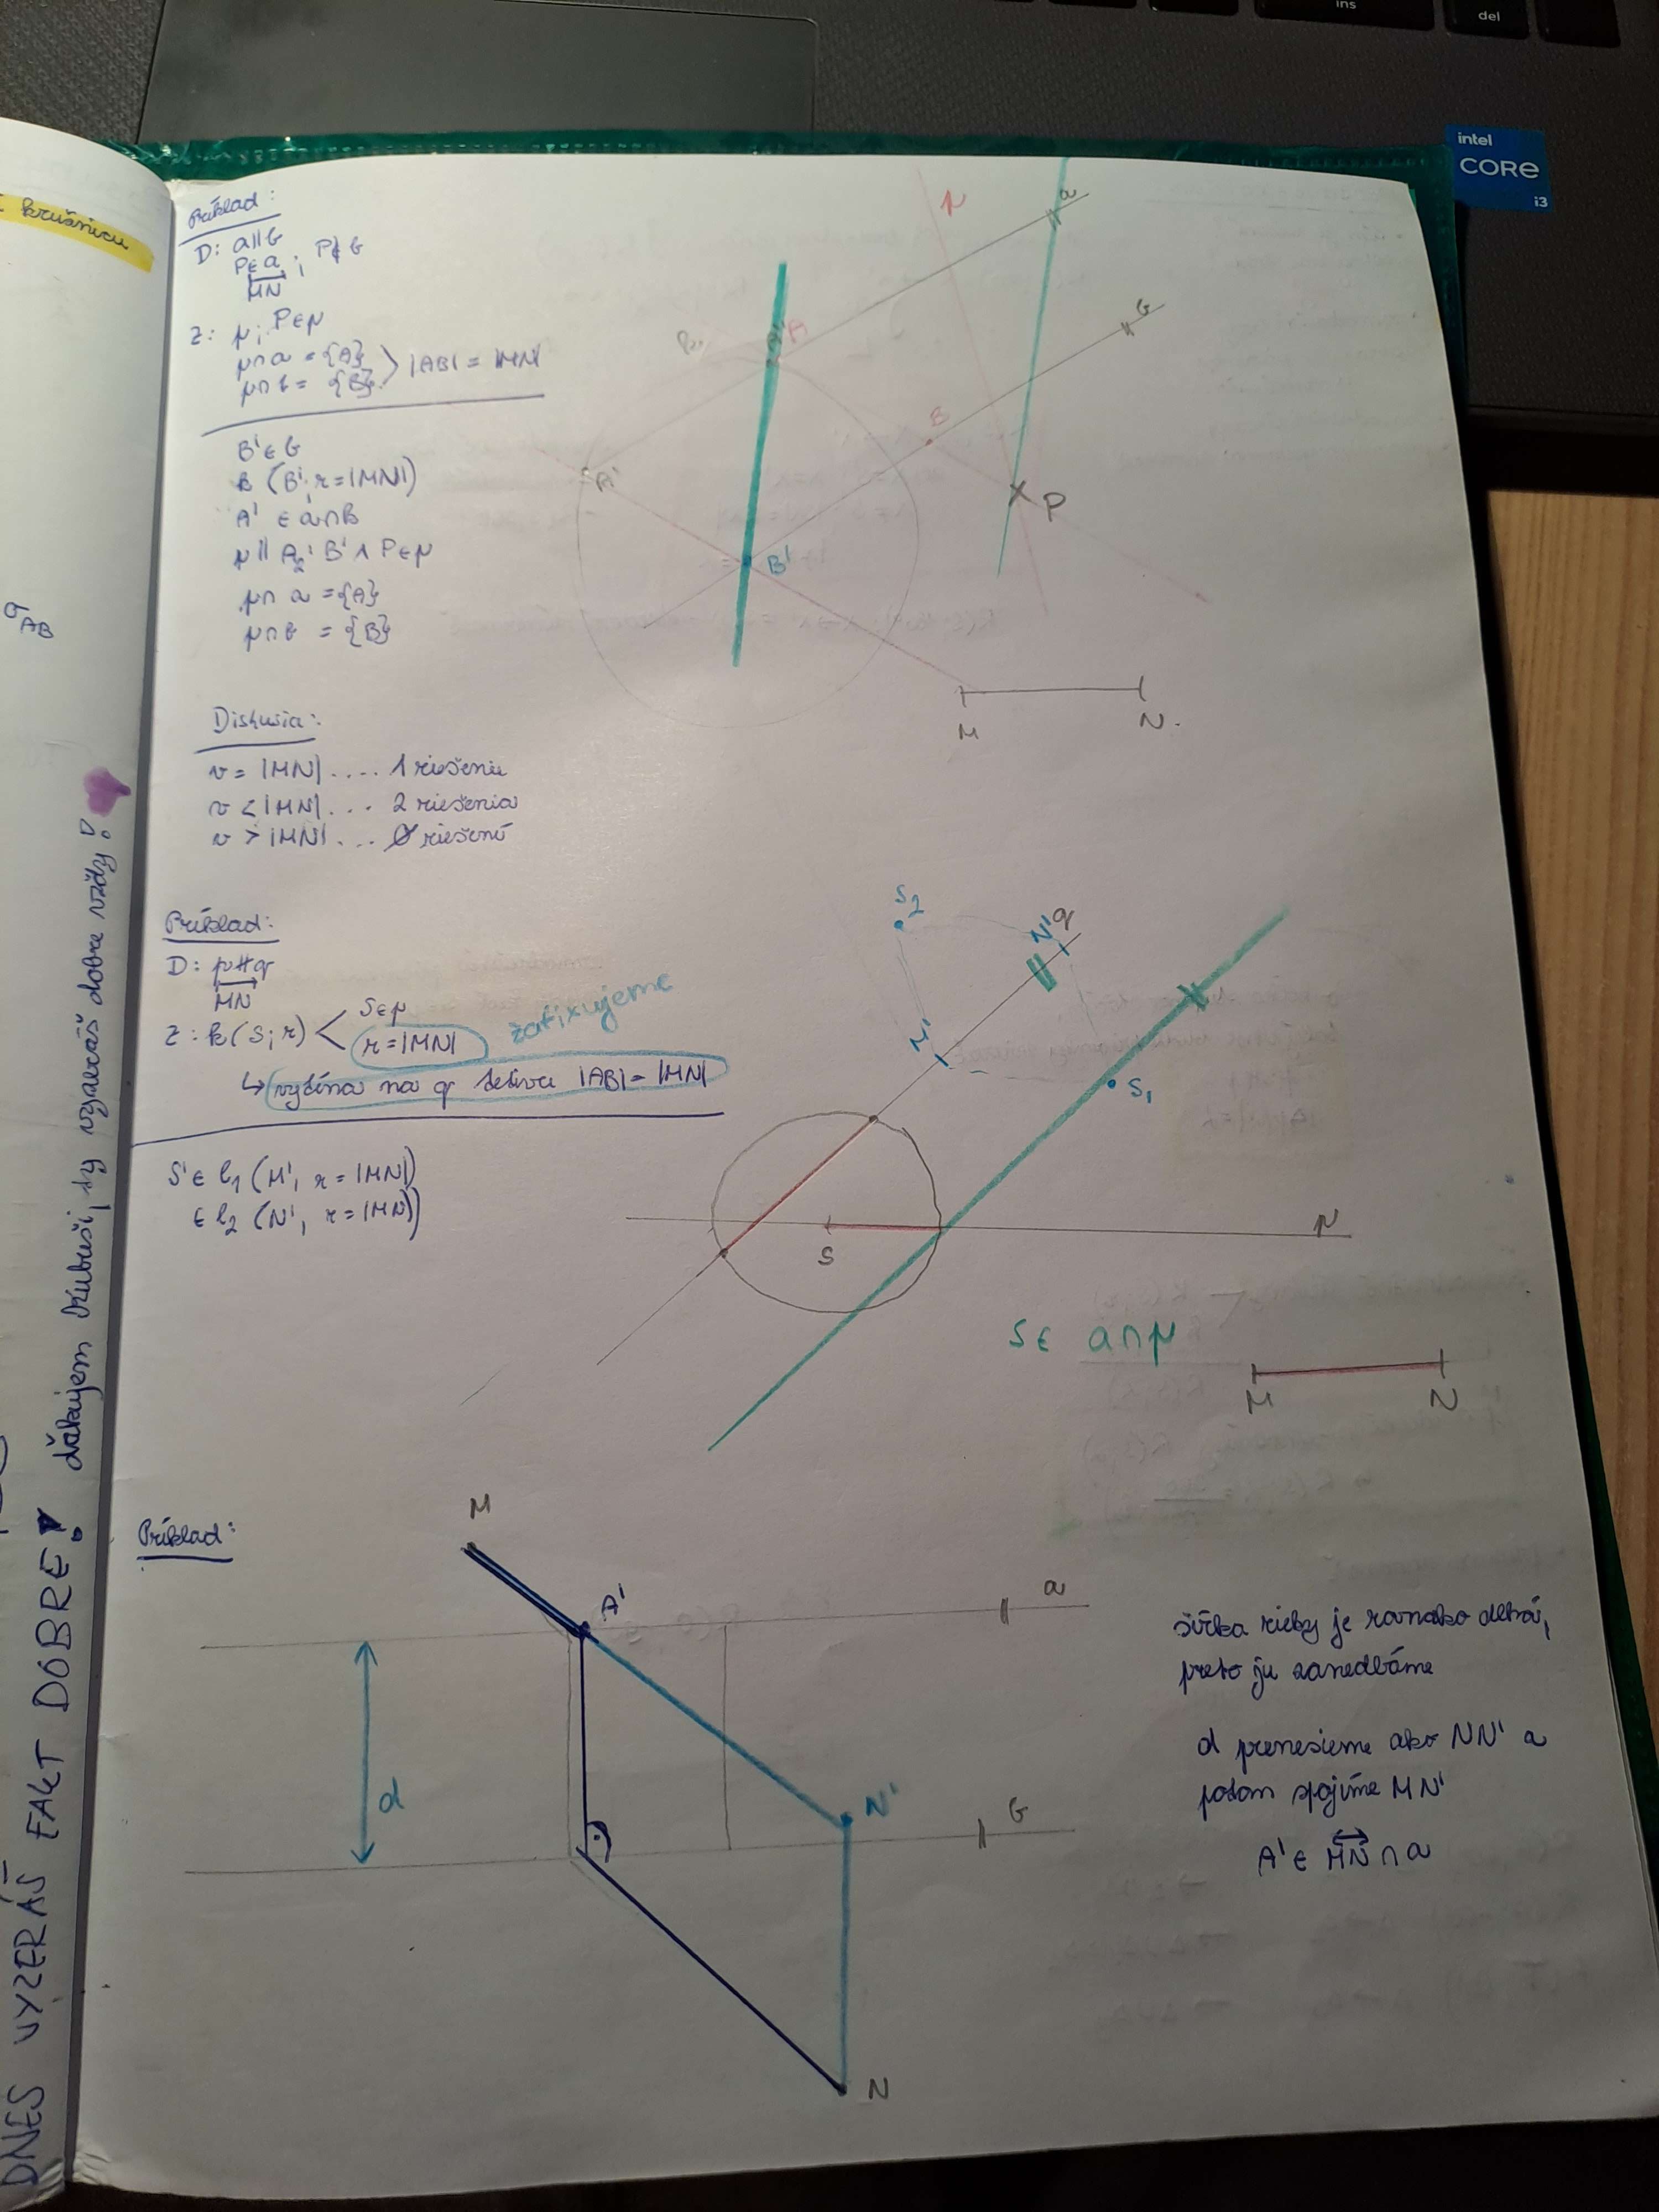 ins
del
intel
CORE
i3
krušnicu
σAB
DNES VYZERÁŠ FAKT DOBRE!
ďakujem
ty vyzeráš dobre vždy!
Príklad:
D: a∥b
P∈a ; P∉b
MN
Z: p; P∈p
p∩a = {A}
p∩b = {B} > |AB| = |MN|
B' ∈ b
k (B'; r=|MN|)
A' ∈ a∩k
p ∥ A₂' B' ∧ P∈p
p∩a = {A}
p∩b = {B}
p
a
b
A'
A
B
A'
B'
P
M
N
Diskusia:
v = |MN| .... 1 riešenie
v < |MN| ... 2 riešenia
v > |MN| ... 0 riešení
Príklad:
D: p∦q
MN
Z: k(S; r) < S∈p
r=|MN| zafixujeme
↳ vytína na q tetivu |AB| = |MN|
S' ∈ l₁ (M', r = |MN|)
∈ l₂ (N', r = |MN|)
S₂
N'
q
M'
S₁
S
p
S∈ a∩p
M
N
Príklad:
M
A'
a
d
N'
b
N
šírka rieky je rovnako dlhá,
preto ju zanedbáme
d prenesieme ako NN' a
potom spojíme MN'
A' ∈ MN ∩ a